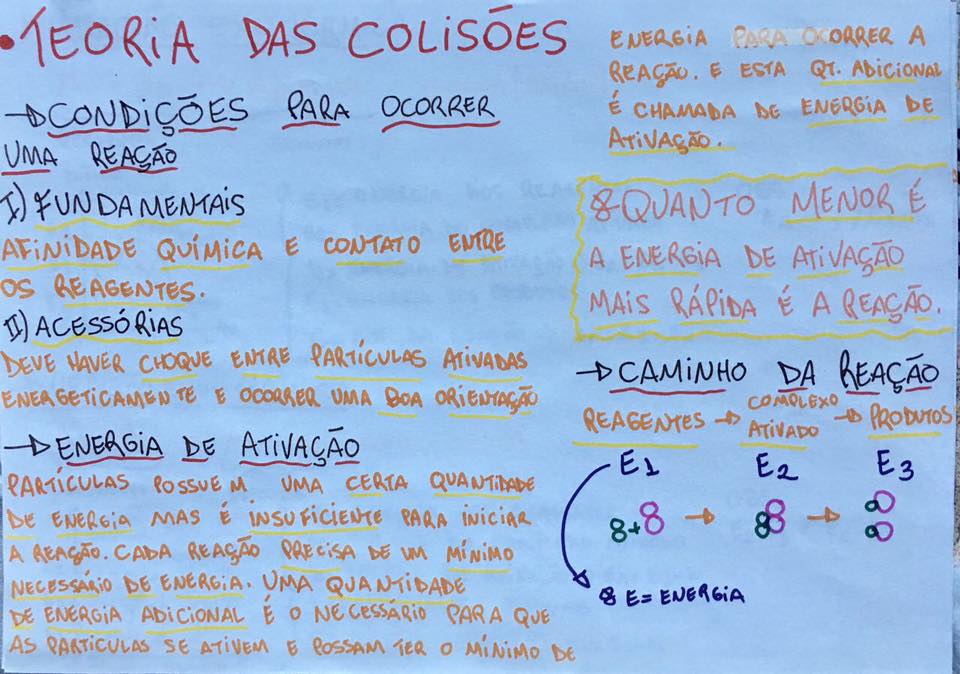 •TEORIA DAS COLISÕES
→CONDIÇÕES PARA OCORRER
UMA REAÇÃO
I) FUNDAMENTAIS
AFINIDADE QUÍMICA E CONTATO ENTRE
OS REAGENTES.
II) ACESSÓRIAS
DEVE HAVER CHOQUE ENTRE PARTÍCULAS ATIVADAS
ENERGETICAMENTE E OCORRER UMA BOA ORIENTAÇÃO
→ENERGIA DE ATIVAÇÃO
PARTÍCULAS POSSUEM UMA CERTA QUANTIDADE
DE ENERGIA MAS É INSUFICIENTE PARA INICIAR
A REAÇÃO. CADA REAÇÃO PRECISA DE UM MÍNIMO
NECESSÁRIO DE ENERGIA. UMA QUANTIDADE
DE ENERGIA ADICIONAL É O NECESSÁRIO PARA QUE
AS PARTICULAS SE ATIVEM E POSSAM TER O MÍNIMO DE
ENERGIA PARA OCORRER A
REAÇÃO. E ESTA QT. ADICIONAL
É CHAMADA DE ENERGIA DE
ATIVAÇÃO.
8-QUANTO MENOR É
A ENERGIA DE ATIVAÇÃO
MAIS RÁPIDA É A REAÇÃO.
→CAMINHO DA REAÇÃO
REAGENTES → COMPLEXO ATIVADO → PRODUTOS
E1 E2 E3
8+8 → 88 → 8 8
8 E= ENERGIA